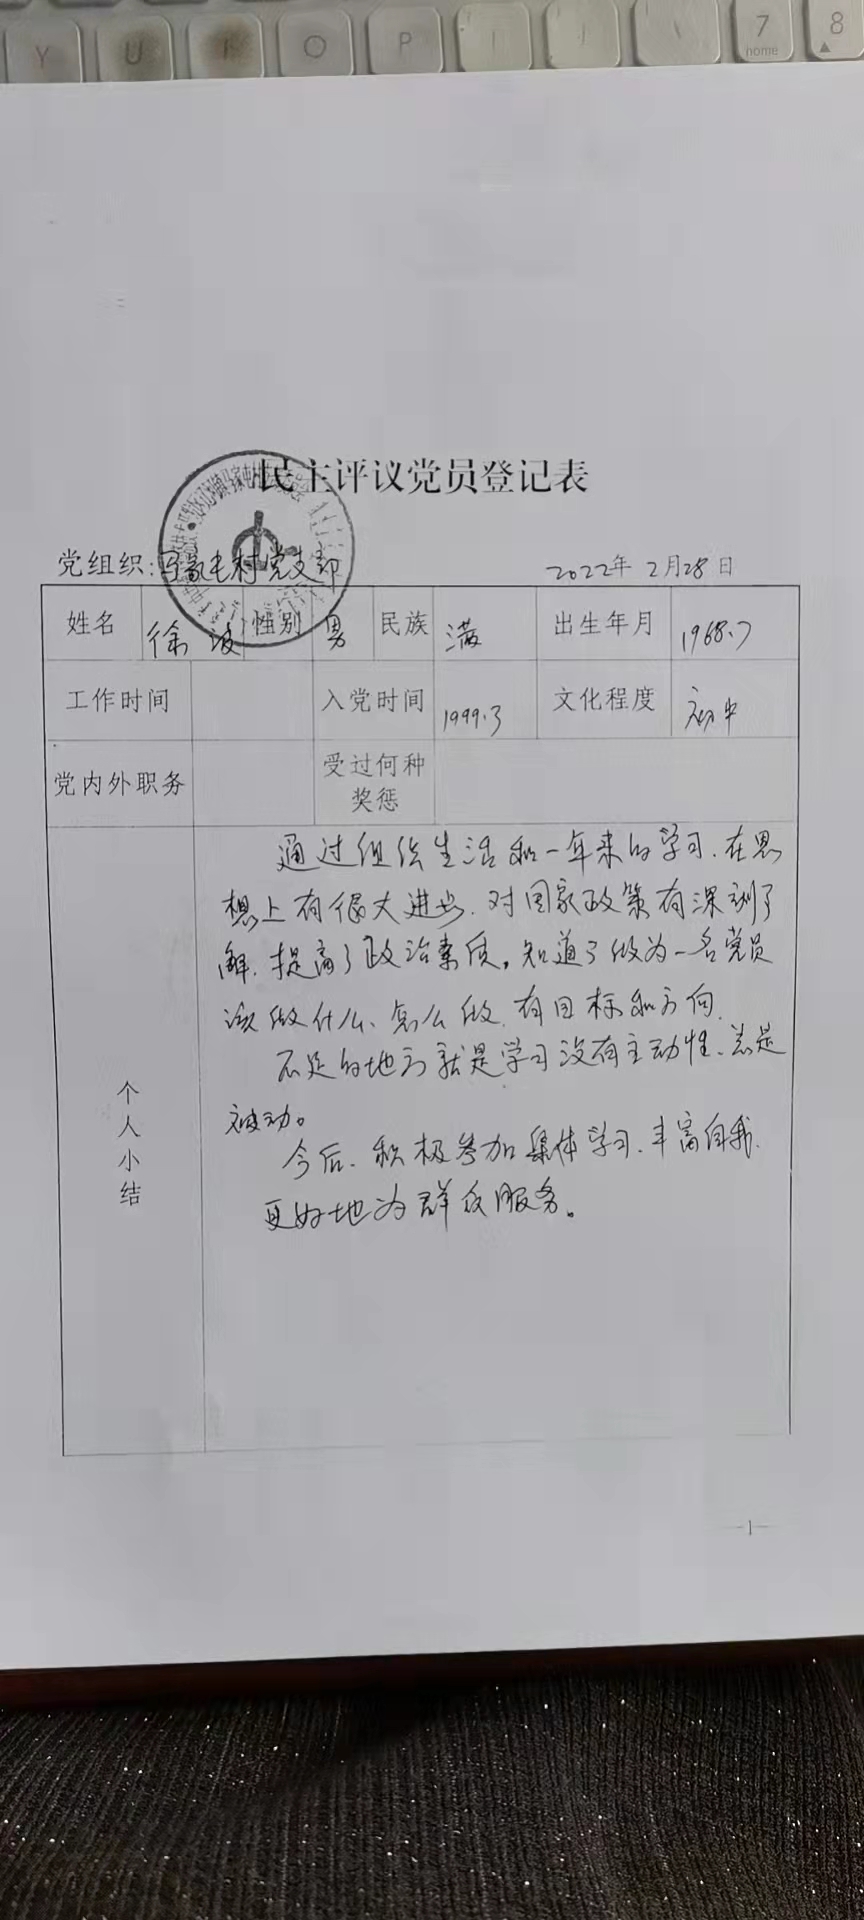 Y U I O P 7 home 8
民主评议党员登记表
党组织: 马家屯村党支部 2022年 2月28日
姓名 徐波 性别 男 民族 满 出生年月 1968.7
工作时间 入党时间 1999.3 文化程度 初中
党内外职务 受过何种
奖惩
个人小结
通过组织生活和一年来的学习、在思
想上有很大进步、对国家政策有深刻了
解、提高了政治素质。知道了做为一名党员
该做什么、怎么做、有目标和方向、
不足的地方就是学习没有主动性、总是
被动。
今后、积极参加集体学习、丰富自我、
更好地为群众服务。
—1—